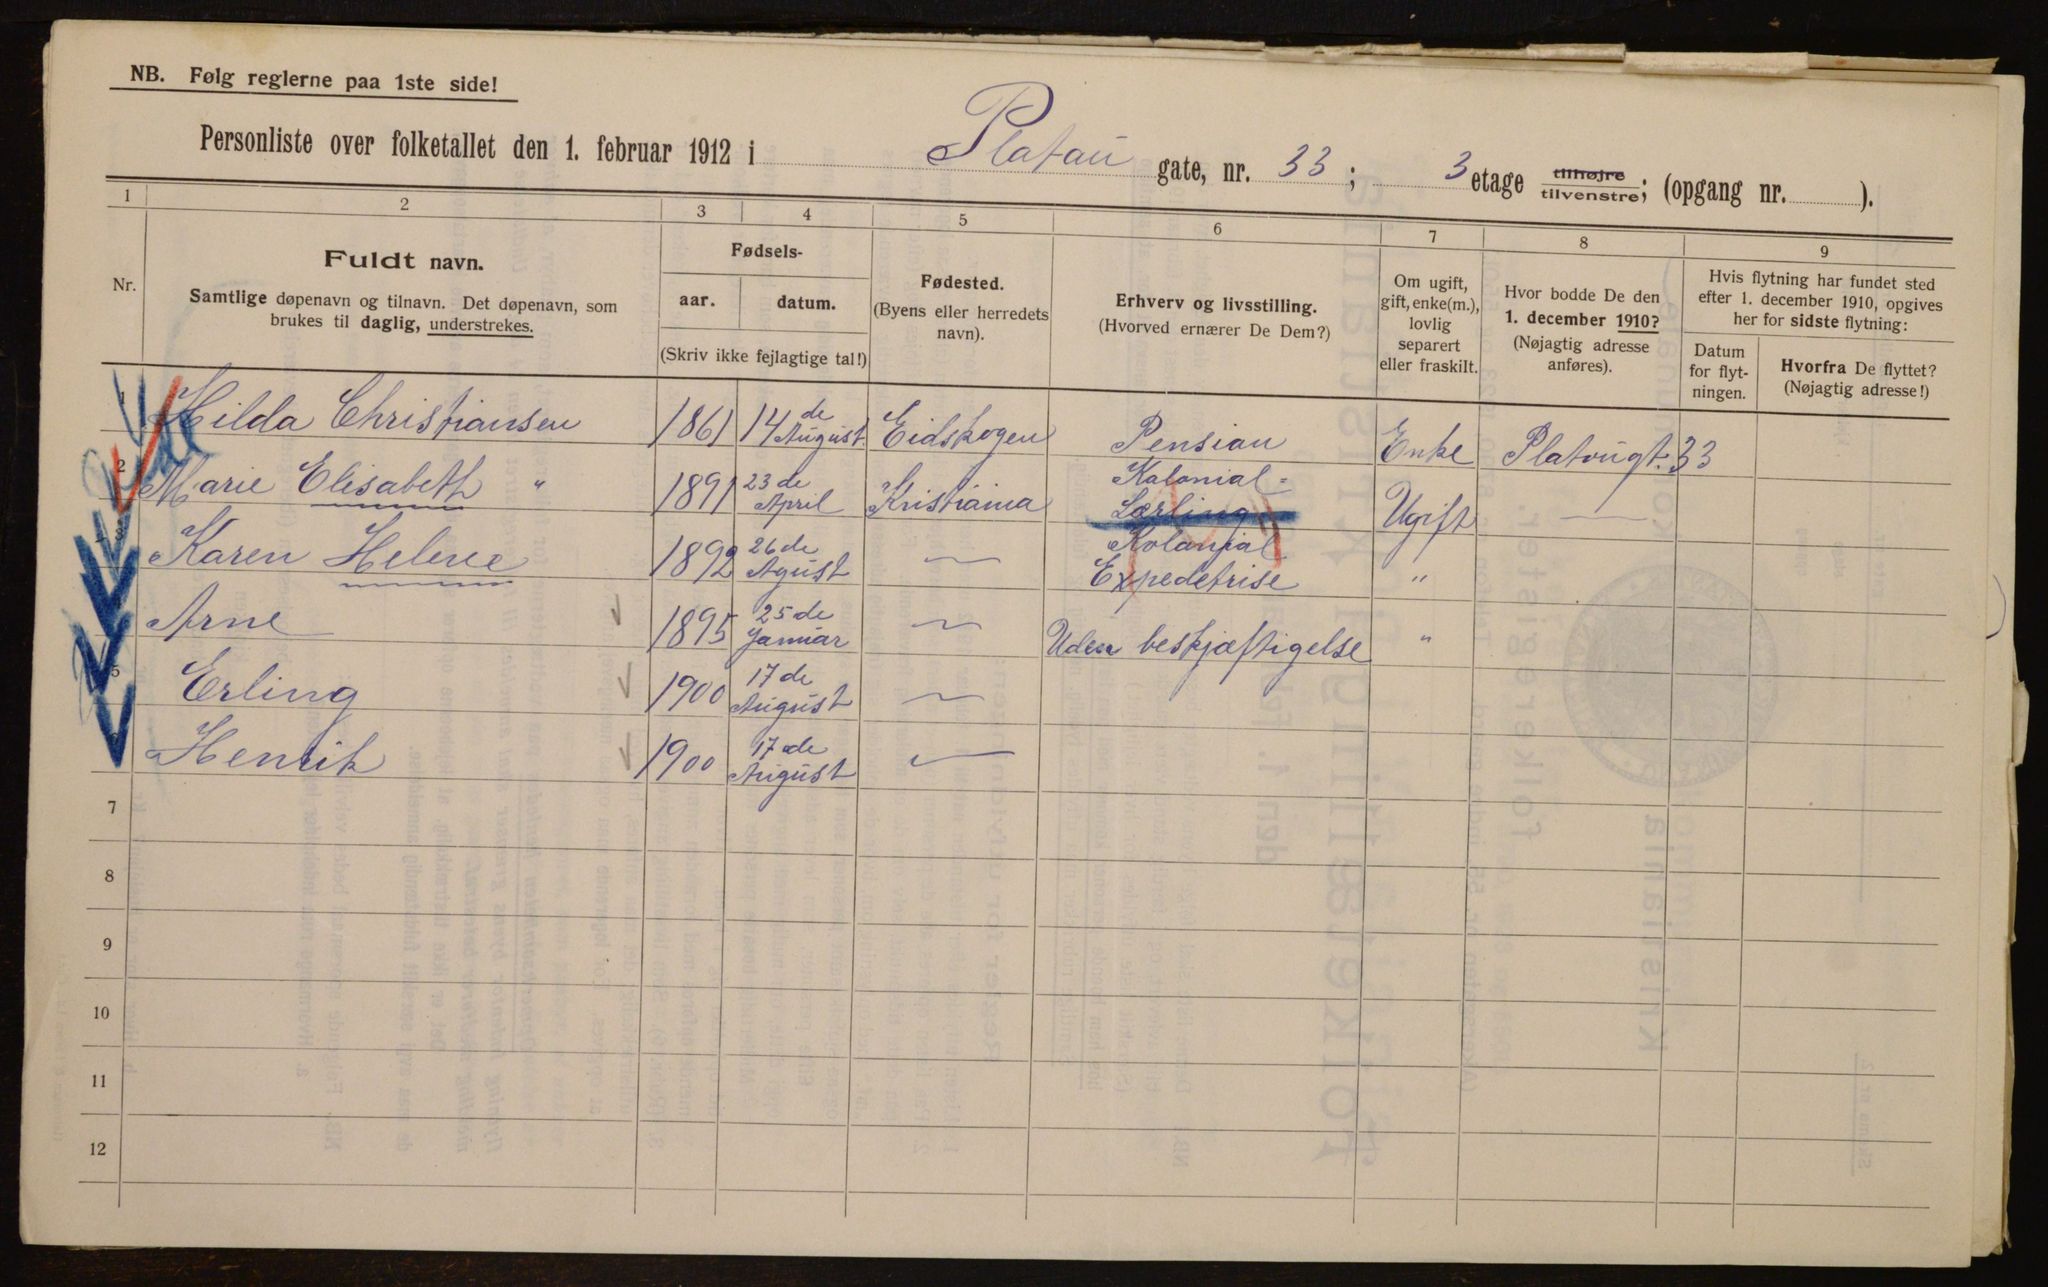 NB. Følg reglerne paa 1ste side!
Personliste over folketallet den 1. februar 1912 i Platoü gate, nr. 33; 3 etage tilhøjre tilvenstre; (opgang nr. ).
1 2 3 4 5 6 7 8 9
Nr.
Fuldt navn.
Samtlige døpenavn og tilnavn. Det døpenavn, som
brukes til daglig, understrekes.
Fødsels-
aar. datum.
(Skriv ikke fejlagtige tal!)
Fødested.
(Byens eller herredets
navn).
Erhverv og livsstilling.
(Hvorved ernærer De Dem?)
Om ugift,
gift, enke(m.),
lovlig
separert
eller fraskilt.
Hvor bodde De den
1. december 1910?
(Nøjagtig adresse
anføres).
Hvis flytning har fundet sted
efter 1. december 1910, opgives
her for sidste flytning:
Datum
for flyt-
ningen.
Hvorfra De flyttet?
(Nøjagtig adresse!)
1 Hilda Christiansen 1861 14 de August Eidskogen Pension Enke Platougt. 33
2 Marie Elisabeth " 1891 23 de April Kristiania Kolonial- Lærling Ugift —
3 Karen Helene 1892 26 de Agust — Kolonial Expedetrise "
Arne 1895 25 de Januar — Uden beskjæftigelse "
5 Erling 1900 17 de August —
Henrik 1900 17 de August —
7
8
9
10
11
12